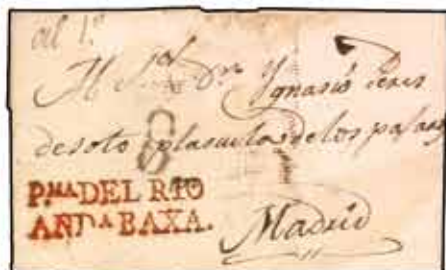 al 1.º
M Sor Dn Ygnasio Peres
de soto plasuela de los pajar
8
P.MA DEL RIO
AND.A BAXA.
Madrid